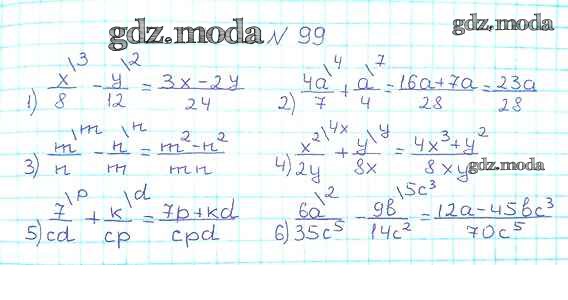 gdz.moda N 99 gdz.moda
1) x/8 \3 - y/12 \2 = 3x-2y/24 2) 4a/7 \4 + a/4 \7 = 16a+7a/28 = 23a/28
3) m/n \m - n/m \n = m²-n²/mn 4) x²/2y \4x + y/8x \y = 4x³+y²/8xy
gdz.moda
5) 7/cd \p + k/cp \d = 7p+kd/cpd 6) 6a/35c⁵ \2 - 9b/14c² \5c³ = 12a-45bc³/70c⁵